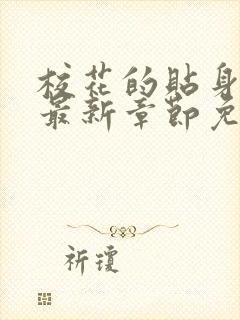 校花的贴身
最新章节免
祈琼